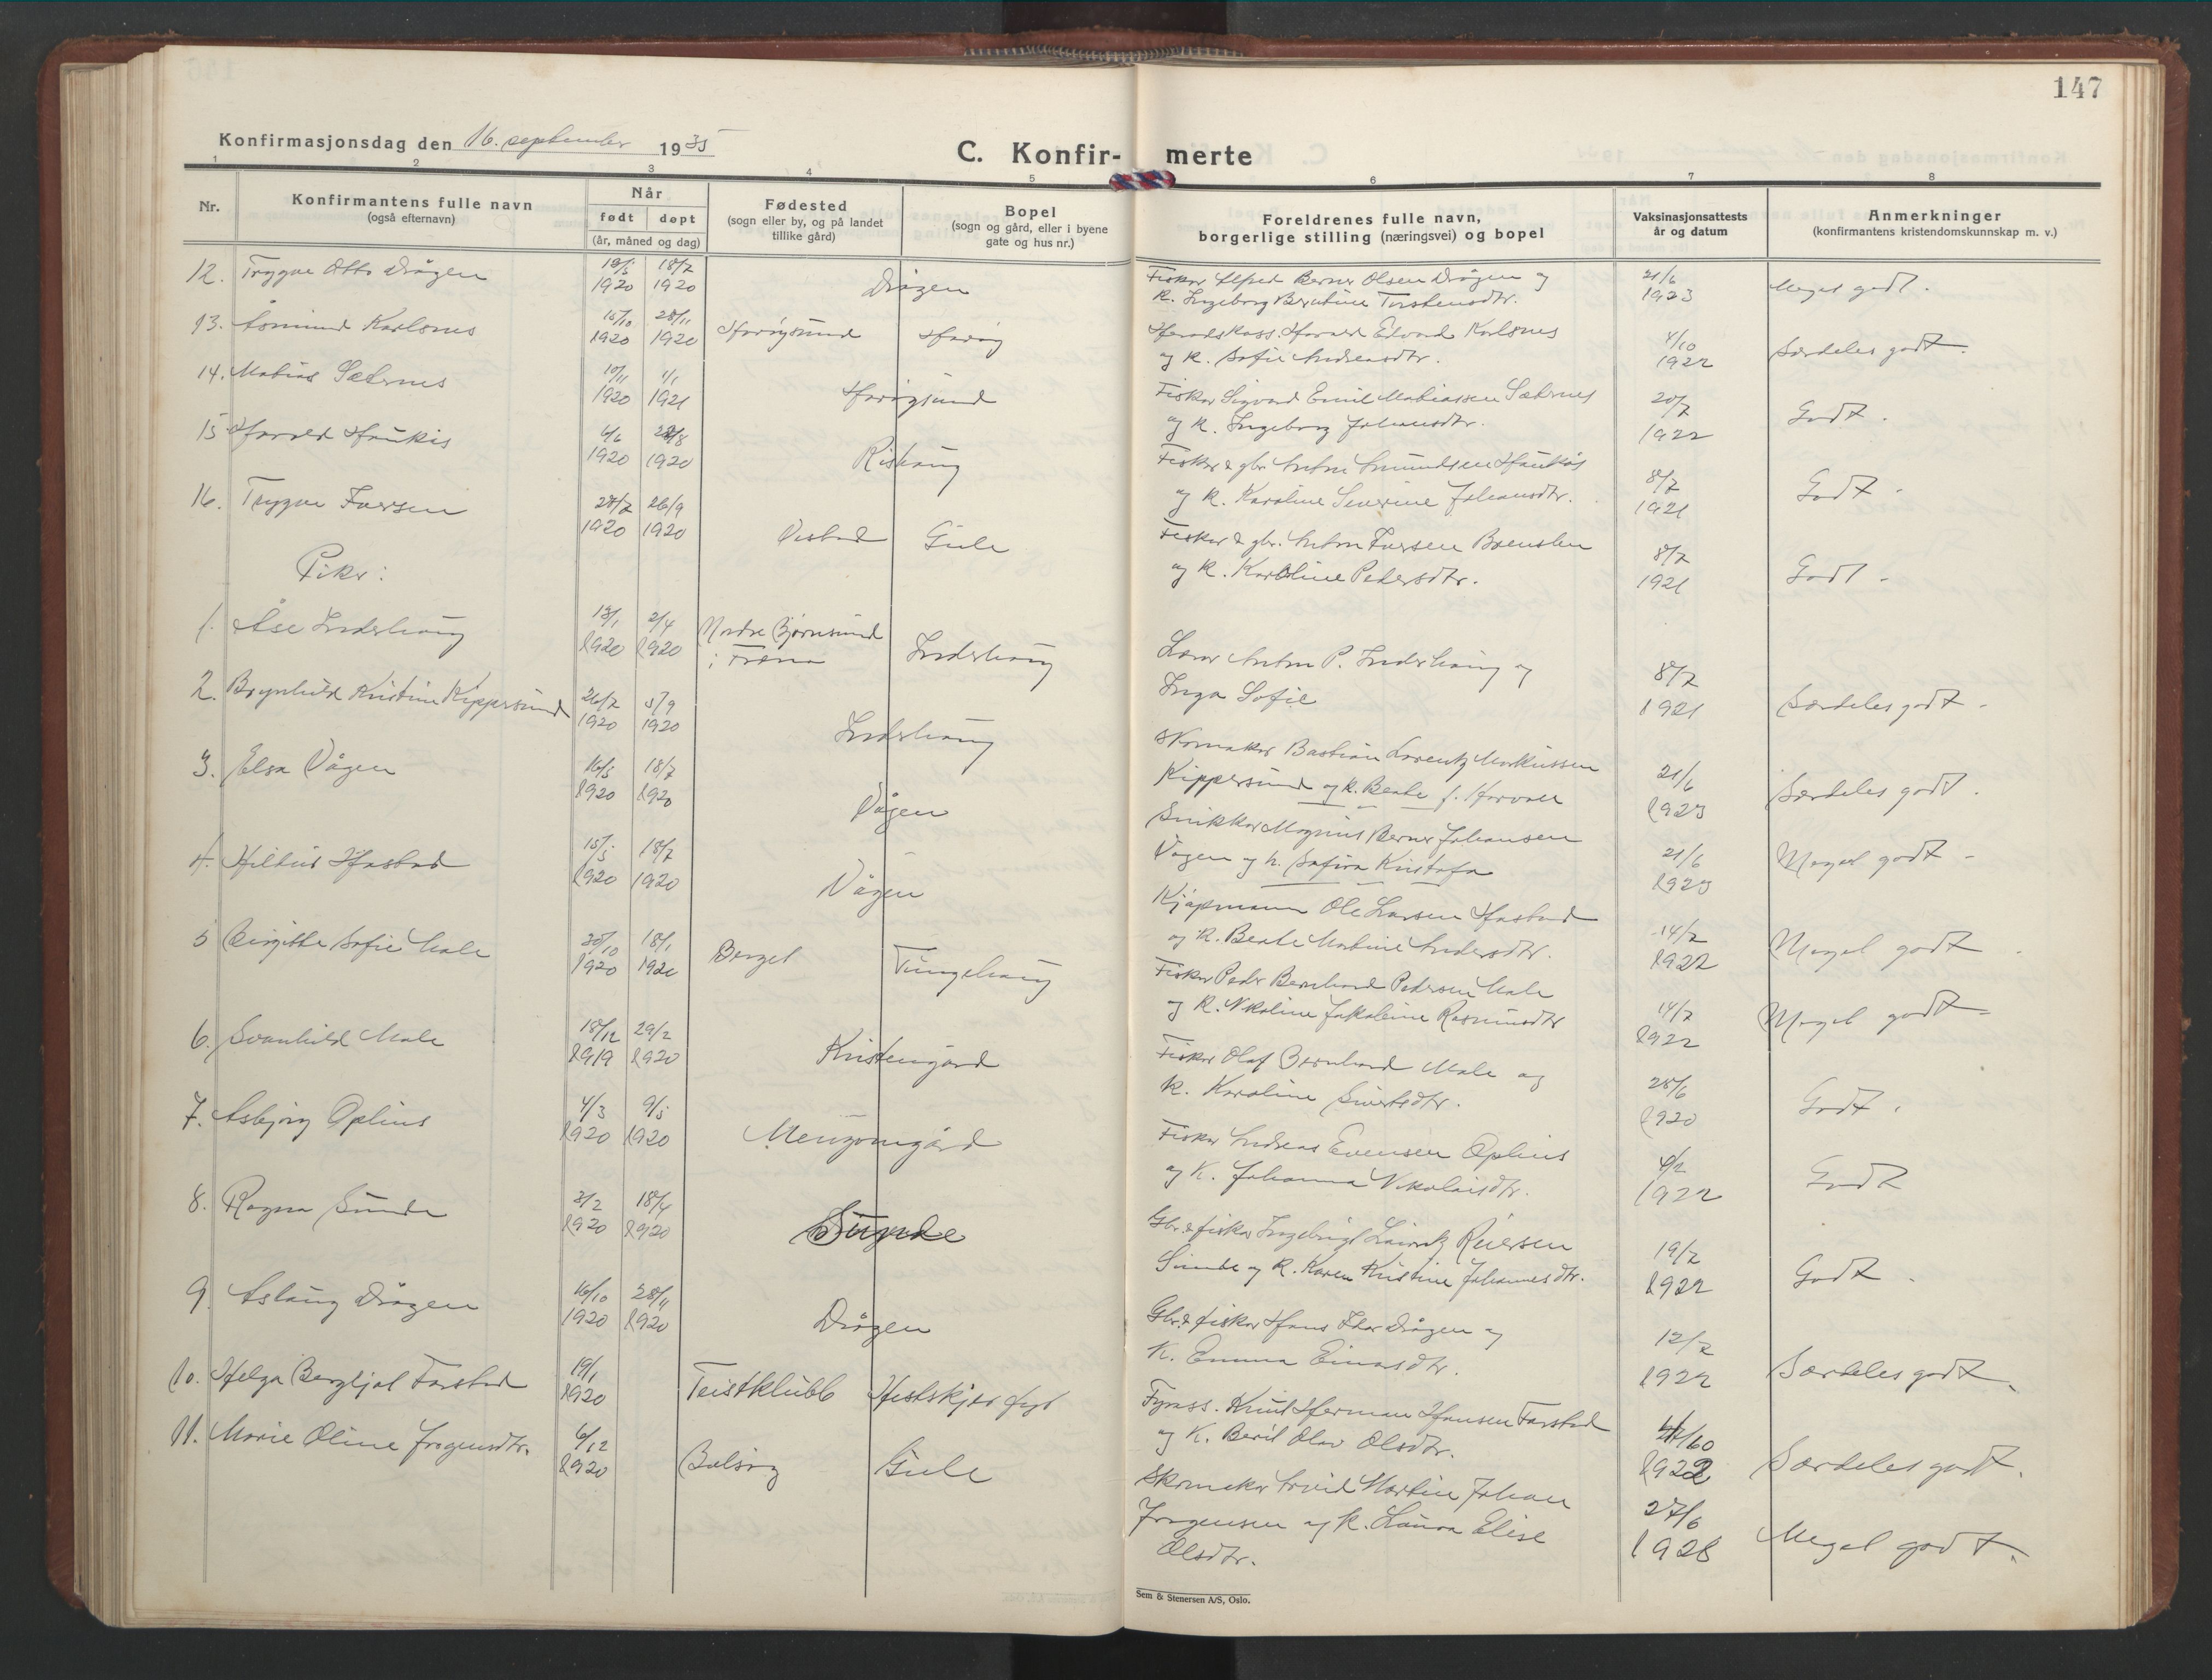 147
Konfirmasjonsdag den 16. september 1935
C. Konfir- merte
1 2 3 4 5 6 7 8
Nr.
Konfirmantens fulle navn
(også efternavn)
Når
født døpt
(år, måned og dag)
Fødested
(sogn eller by, og på landet
tillike gård)
Bopel
(sogn og gård, eller i byene
gate og hus nr.)
Foreldrenes fulle navn,
borgerlige stilling (næringsvei) og bopel
Vaksinasjonsattests
år og datum
Anmerkninger
(konfirmantens kristendomskunnskap m. v.)
12. Trygve Otto Drågen 1920 18/7 1920 Drågen
Fisker Alfred Berner Olsen Drågen og
k. Ingeborg Berntine Torstensdtr. 21/6 1923 Meget godt.
13. Åsmund Karlsnes 15/10 1920 28/11 1920 Harøysund Harøy
Heradskass. Harald Edvard Karlsnes
og k. Sofie Andreasdtr. 4/10 1922 Særdeles godt.
14. Matias Sæternes 10/11 1920 1/1 1921 Harøysund
Fisker Sigvard Emil Matiassen Sæternes
og k. Ingeborg Johansdtr. 20/7 1922 Godt.
15 Harald Haukås 6/6 1920 1920 Rishaug
Fisker & gbr. Anton Amundsen Haukås
og k. Karoline Severine Johansdtr. 8/7 1921 Godt.
16. Trygve Iversen 27/7 1920 26/9 1920 Vestad Gule
Fisker & gbr. Anton Iversen
og k. Karoline Pedersdtr. 8/7 1921 Godt.
Piker:
1. Åse Inderhaug 13/1 1920 2/4 1920 Nordre Bjørnsund
i Fræna Inderhaug
Lærer Anton P. Inderhaug og
Inga Sofie 8/7 1921 Særdeles godt.
2. Brynhild Kristine Kippersund 26/7 1920 5/9 1920 Inderhaug
Skomaker Bastian Lorentz Markussen
Kippersund og k. Beate f. Harvær 21/6 1923 Særdeles godt.
3. Elsa Vågen 16/5 1920 18/7 1920 Vågen
Snikker Magnus Berner Johansen
Vågen og h. Safira Kristofa 21/6 1923 Meget godt.
4. Hildur Hustad 15/5 1920 18/7 1920 Vågen
Kjøpmann Ole Larsen Hustad
og k. Beate Martine Andersdtr. 14/7 1922 Meget godt.
5 Birgitte Sofie Male 30/10 1920 18/1 1920 Berget Tungehaug
Fisker Peder Bernhard Pedersen Male
og k. Nikoline Jakobine Rasmusdtr 14/7 1922 Meget godt.
6. Svanhild Male 18/12 1919 29/2 1920 Kristengård
Fisker Olaf Bernhard Male og
k. Karoline Sivertsdtr. 28/6 1920 Godt.
7. Asbjørg Oplius 4/3 1920 9/5 1920
Fisker Andreas Evensen Oplius
og k. Johanna Nikolaisdtr. 1922 Godt
8. Ragna Sunde 2/2 1920 18/4 1920 Sunde
Gbr. & fisker Ingebrigt Laurits
Sunde og k. Karen Kristine Johannesdtr. 19/7 1922 Godt.
9. Aslaug Drågen 16/10 1920 28/11 1920 Drågen
Gbr. & fisker Hans Edvr Drågen og
k. Emma Einarsdtr. 12/7 1922 Særdeles godt.
10. Helga Bergljot Farstad 19/1 1920 Teistklubb Hestskjær fyr
Fyrass. Knut Herman Hansen Farstad
og k. Berit Olav Olsdtr. 1922 Særdeles godt.
11. Marie Oline Jørgensdtr. 6/12 1920 Bolsøy Gule
Skomaker Martin Johan
Jørgensen og k. Laura Elise
Olsdtr. 27/6 1928 Meget godt.
Sem & Stenersen A/S, Oslo.